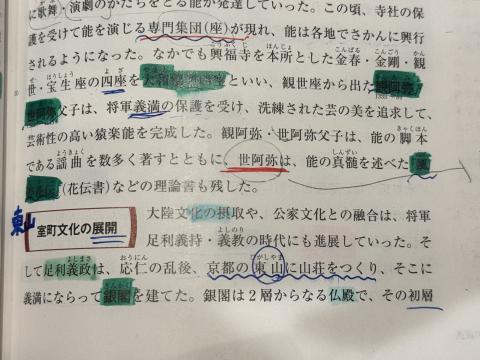 に歌舞・演劇のかたちをとる能が発達していった。この頃，寺社の保
護を受けて能を演じる専門集団(座)が現れ，能は各地でさかんに興行
されるようになった。なかでも興福寺を本所とした金春・金剛・観
世・宝生座の四座を大和猿楽四座といい，観世座から出た観阿弥・
世阿弥父子は，将軍義満の保護を受け，洗練された芸の美を追求して，
芸術性の高い猿楽能を完成した。観阿弥・世阿弥父子は，能の脚本
である謡曲を数多く著すとともに，世阿弥は，能の真髄を述べた『風
姿花伝』(花伝書)などの理論書も残した。
東山
室町文化の展開
大陸文化の摂取や，公家文化との融合は，将軍
足利義持・義教の時代にも進展していった。そ
して足利義政は，応仁の乱後，京都の東山に山荘をつくり，そこに
義満にならって銀閣を建てた。銀閣は2層からなる仏殿で，その初層